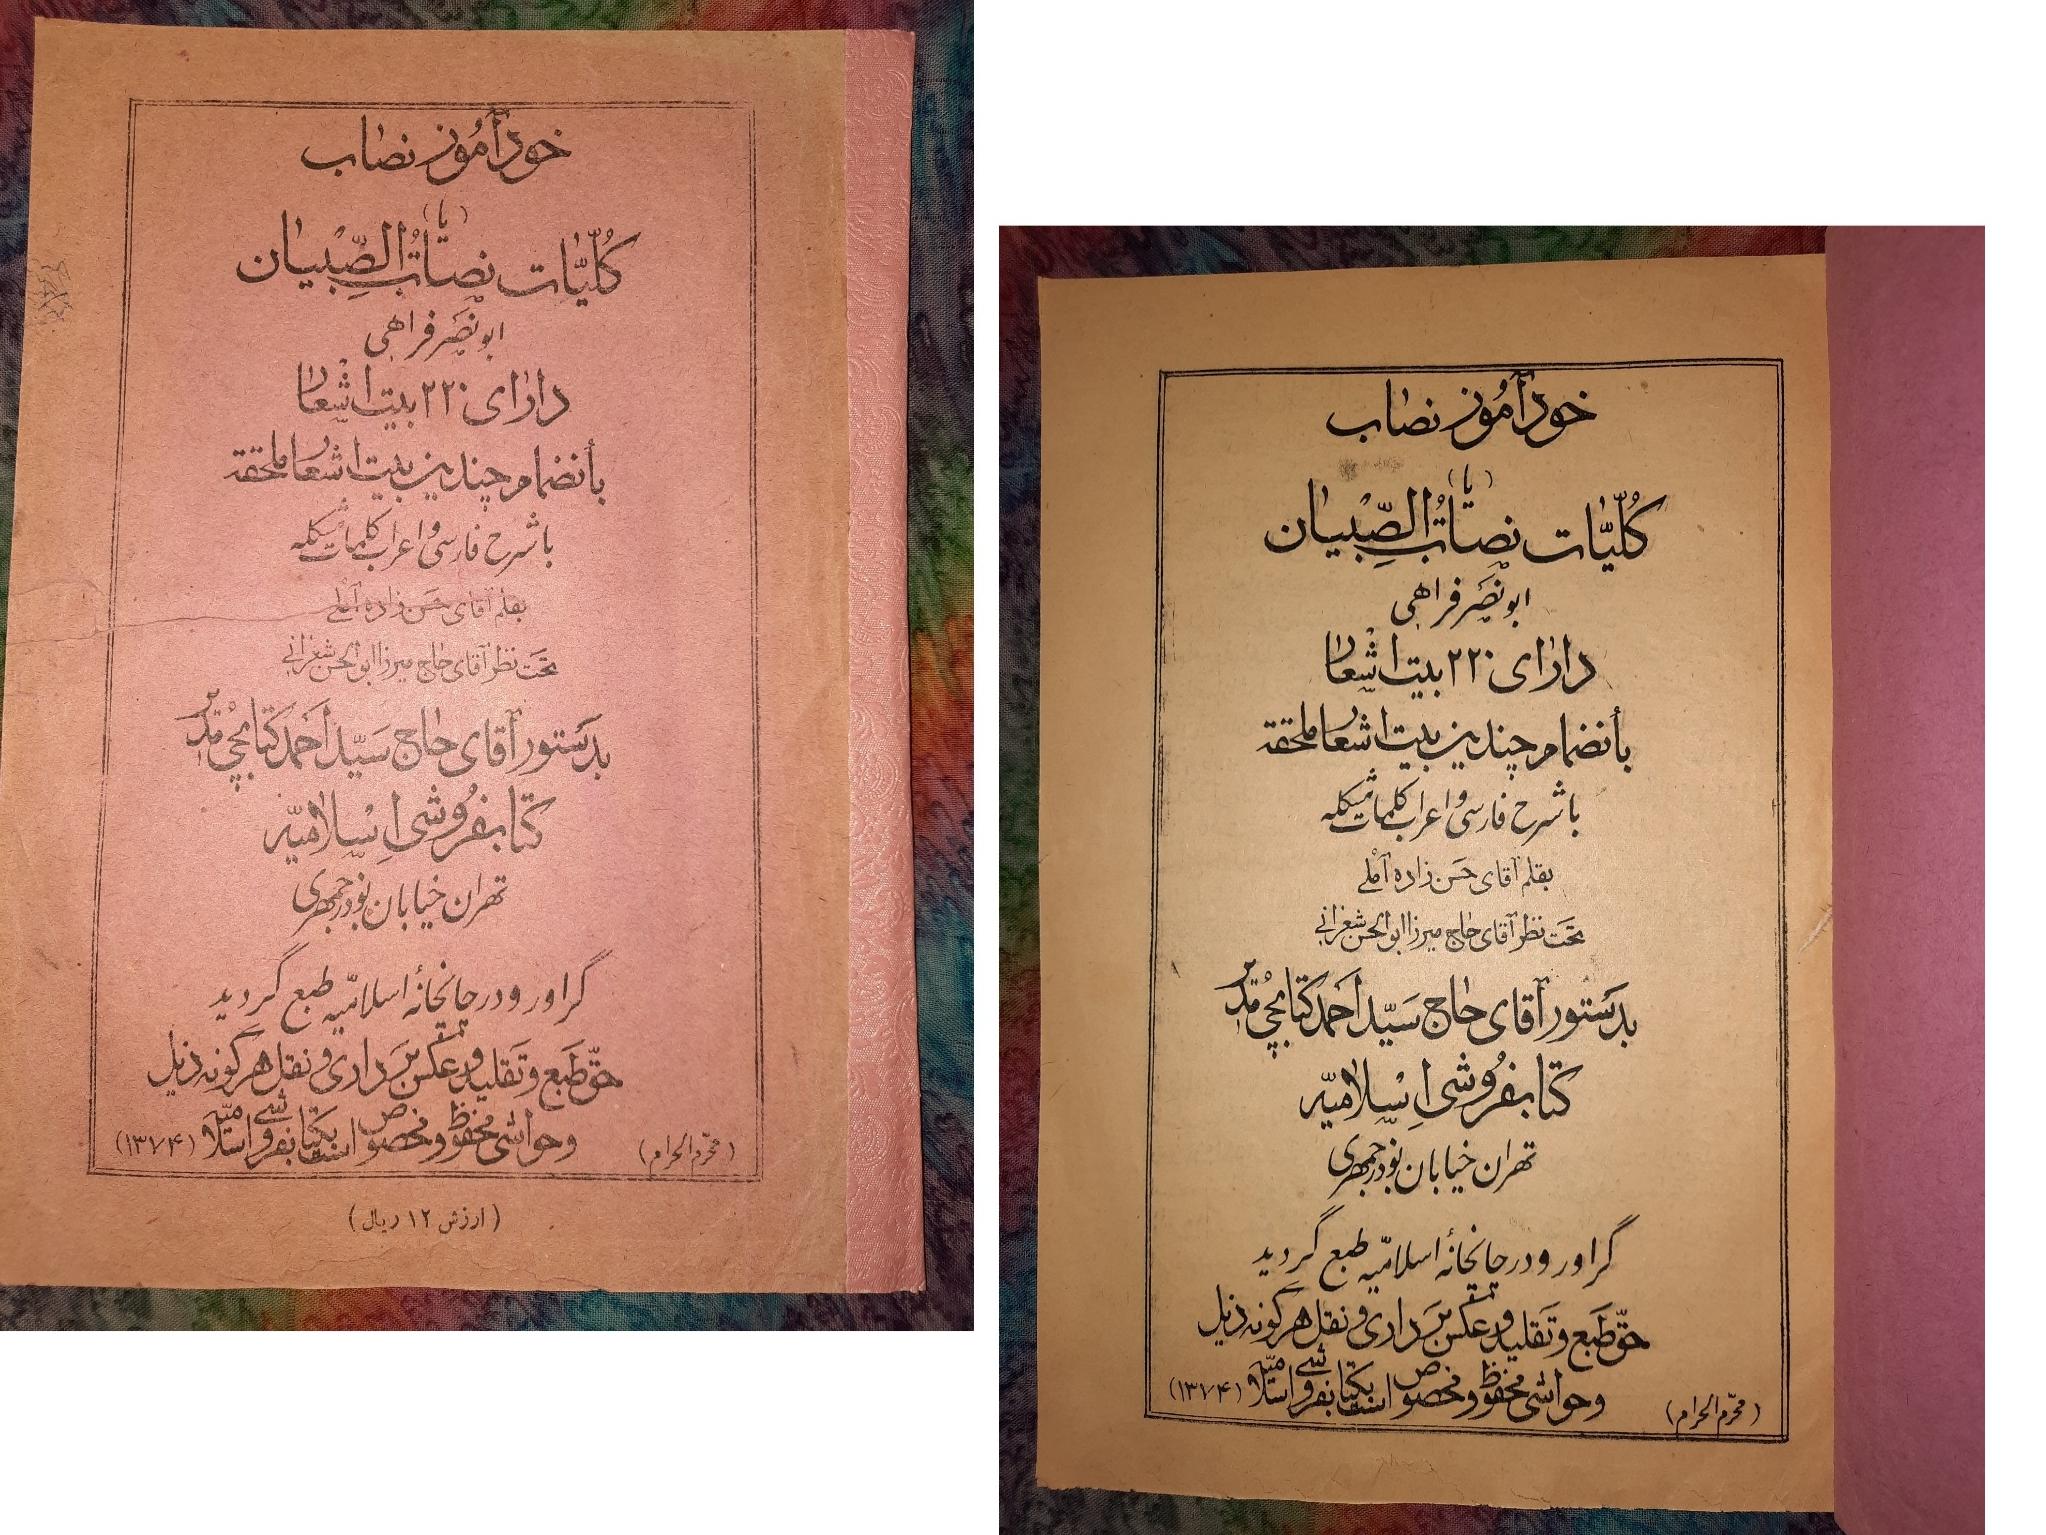 خودآموز نصاب
(یا)
کُلیّات نصابُ الصِّبْیان
ابونصر فراهی
دارای ۲۲۰ بیت اشعار
بأنضمام چندین بیت اشعار ملحقة
با شرح فارسی و اعراب کلمات مشکله
بقلم آقای حسن زاده آملی
تحت نظر آقای حاج میرزا ابوالحسن شعرانی
بدستور آقای حاج سیّد احمد کتابچی مدیر
کتابفروشی اسلامیّه
تهران خیابان بوذرجمهری
گراور و در چاپخانهٔ اسلامیّه طبع گردید
حقّ طبع و تقلید و عکس برداری و نقل هرگونه ذیل
و حواشی محفوظ و مخصوص است بکتابفروشی اسلامیّه (۱۳۷۴)
(محرّم الحرام)
(ارزش ۱۲ ریال)
خودآموز نصاب
(یا)
کُلیّات نصابُ الصِّبْیان
ابونصر فراهی
دارای ۲۲۰ بیت اشعار
بأنضمام چندین بیت اشعار ملحقة
با شرح فارسی و اعراب کلمات مشکله
بقلم آقای حسن زاده آملی
تحت نظر آقای حاج میرزا ابوالحسن شعرانی
بدستور آقای حاج سیّد احمد کتابچی مدیر
کتابفروشی اسلامیّه
تهران خیابان بوذرجمهری
گراور و در چاپخانهٔ اسلامیّه طبع گردید
حقّ طبع و تقلید و عکس برداری و نقل هرگونه ذیل
و حواشی محفوظ و مخصوص است بکتابفروشی اسلامیّه (۱۳۷۴)
(محرّم الحرام)